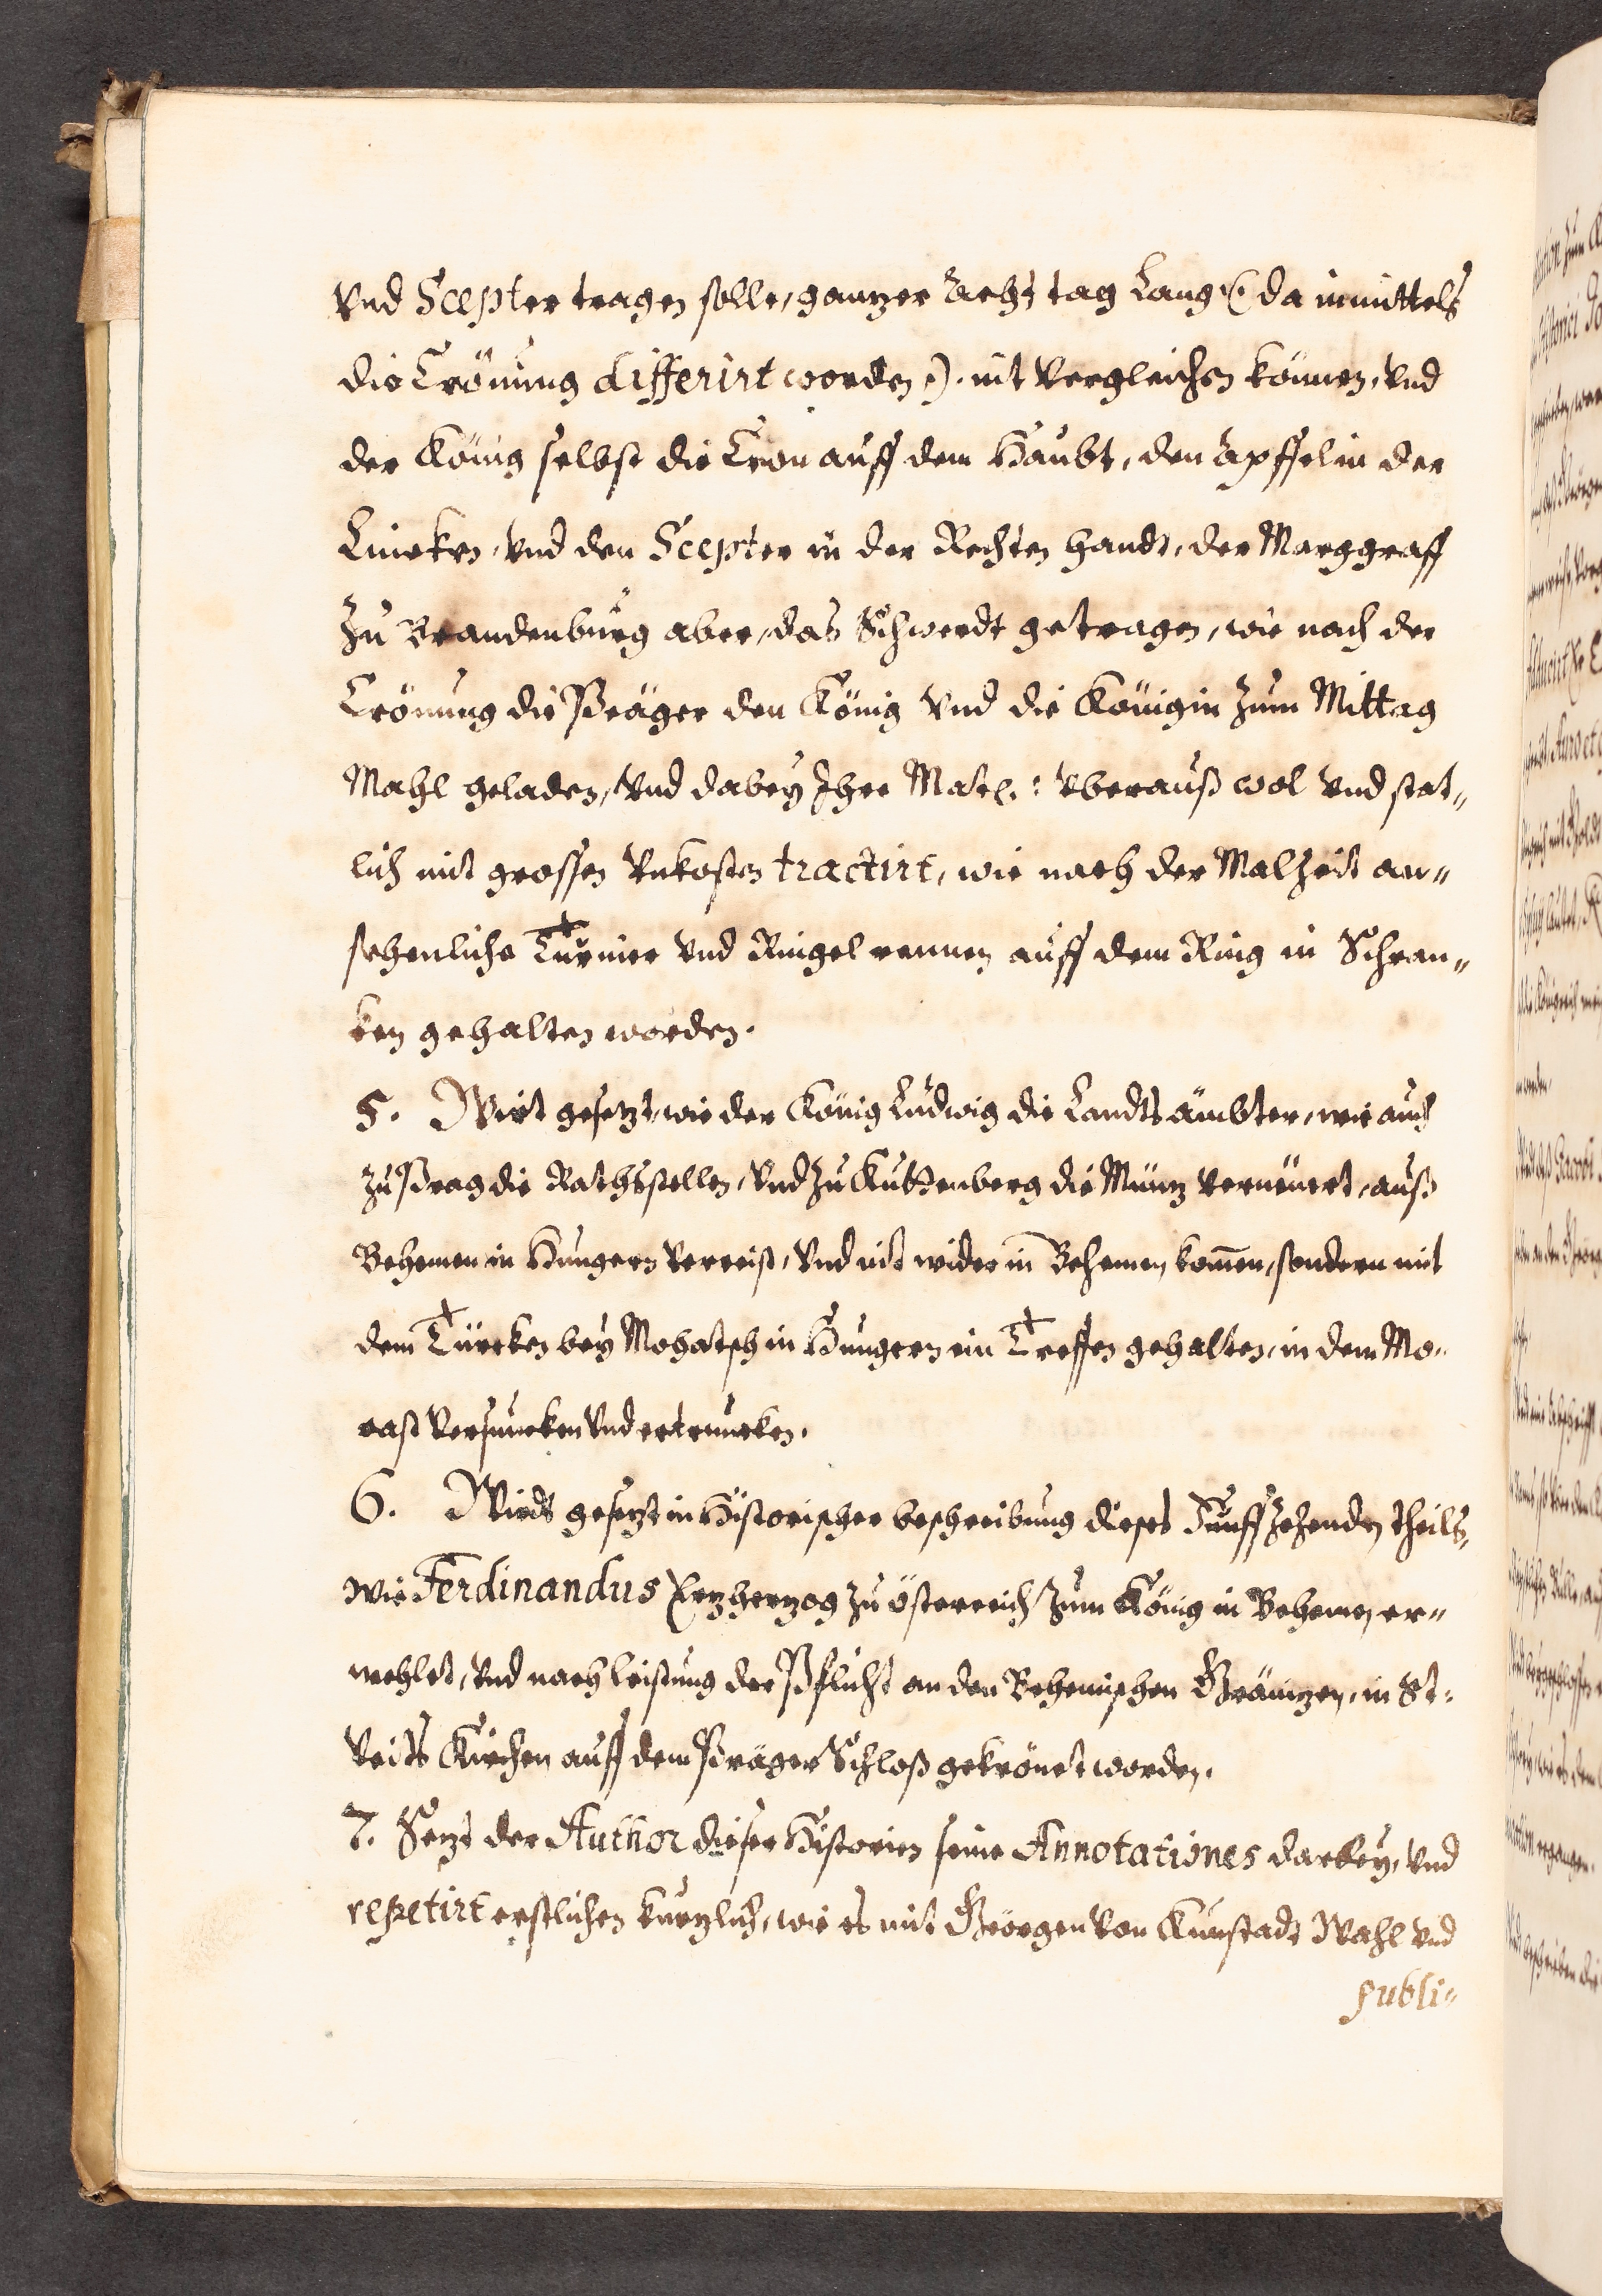 Vnd Scepter tragen solle, gantzer acht tag Lang (: da inmittels
die Crönung differirt worden :) nit Vergleichen können, Vnd
der König selbst die Cron auff dem Haubt, den Apffel in der
Lincken, Vnd den Scepter in der Rechten handt, der Marggraff
zu Brandenburg aber, das Schwerdt getragen, wie nach der
Crönung die Präger den König Vnd die Königin zum Mittag
Mahl geladen, Vnd dabey Ihre Matt.: Vberauß wol Vnd stat„
lich mit grossen Vnkosten tractirt, wie nach der Malzeit an„
sehenliche Turnier Vnd Ringel rennen auff dem Ring in Schran„
ken gehalten worden.
5. Wirt gesetzt, wie der König Ludwig die Landts ämbter, wie auch
zu Prag die Rathsstellen, Vnd zu Kuttenberg die Müntz Verneuert, auß
Behemen in Hungern Verreist, Vnd nit wider in Behemen kom̄en, sondern mit
dem Türcken bey Mohatsch in Hungern ein Treffen gehalten, in dem Mo„
rast Versuncken Vnd ertruncken.
6. Wirdt gesetzt in Historischer beschreibung dieses Funffzehenden theils,
wie Ferdinandus Ertzhertzog zu österreich zum König in Behemen er„
wehlet, Vnd nach leistung der Pflicht an den Behemischen Gränitzen, in St:
Veits Kirchen auff dem Präger Schloß gekrönet worden.
7. Setzt der Author dieser Historien seine Annotationes darbey, Vnd
repetirt erstlichen kurtzlich, wie es mit Geörgen Von Kunstadt Wahl Vnd
publi„